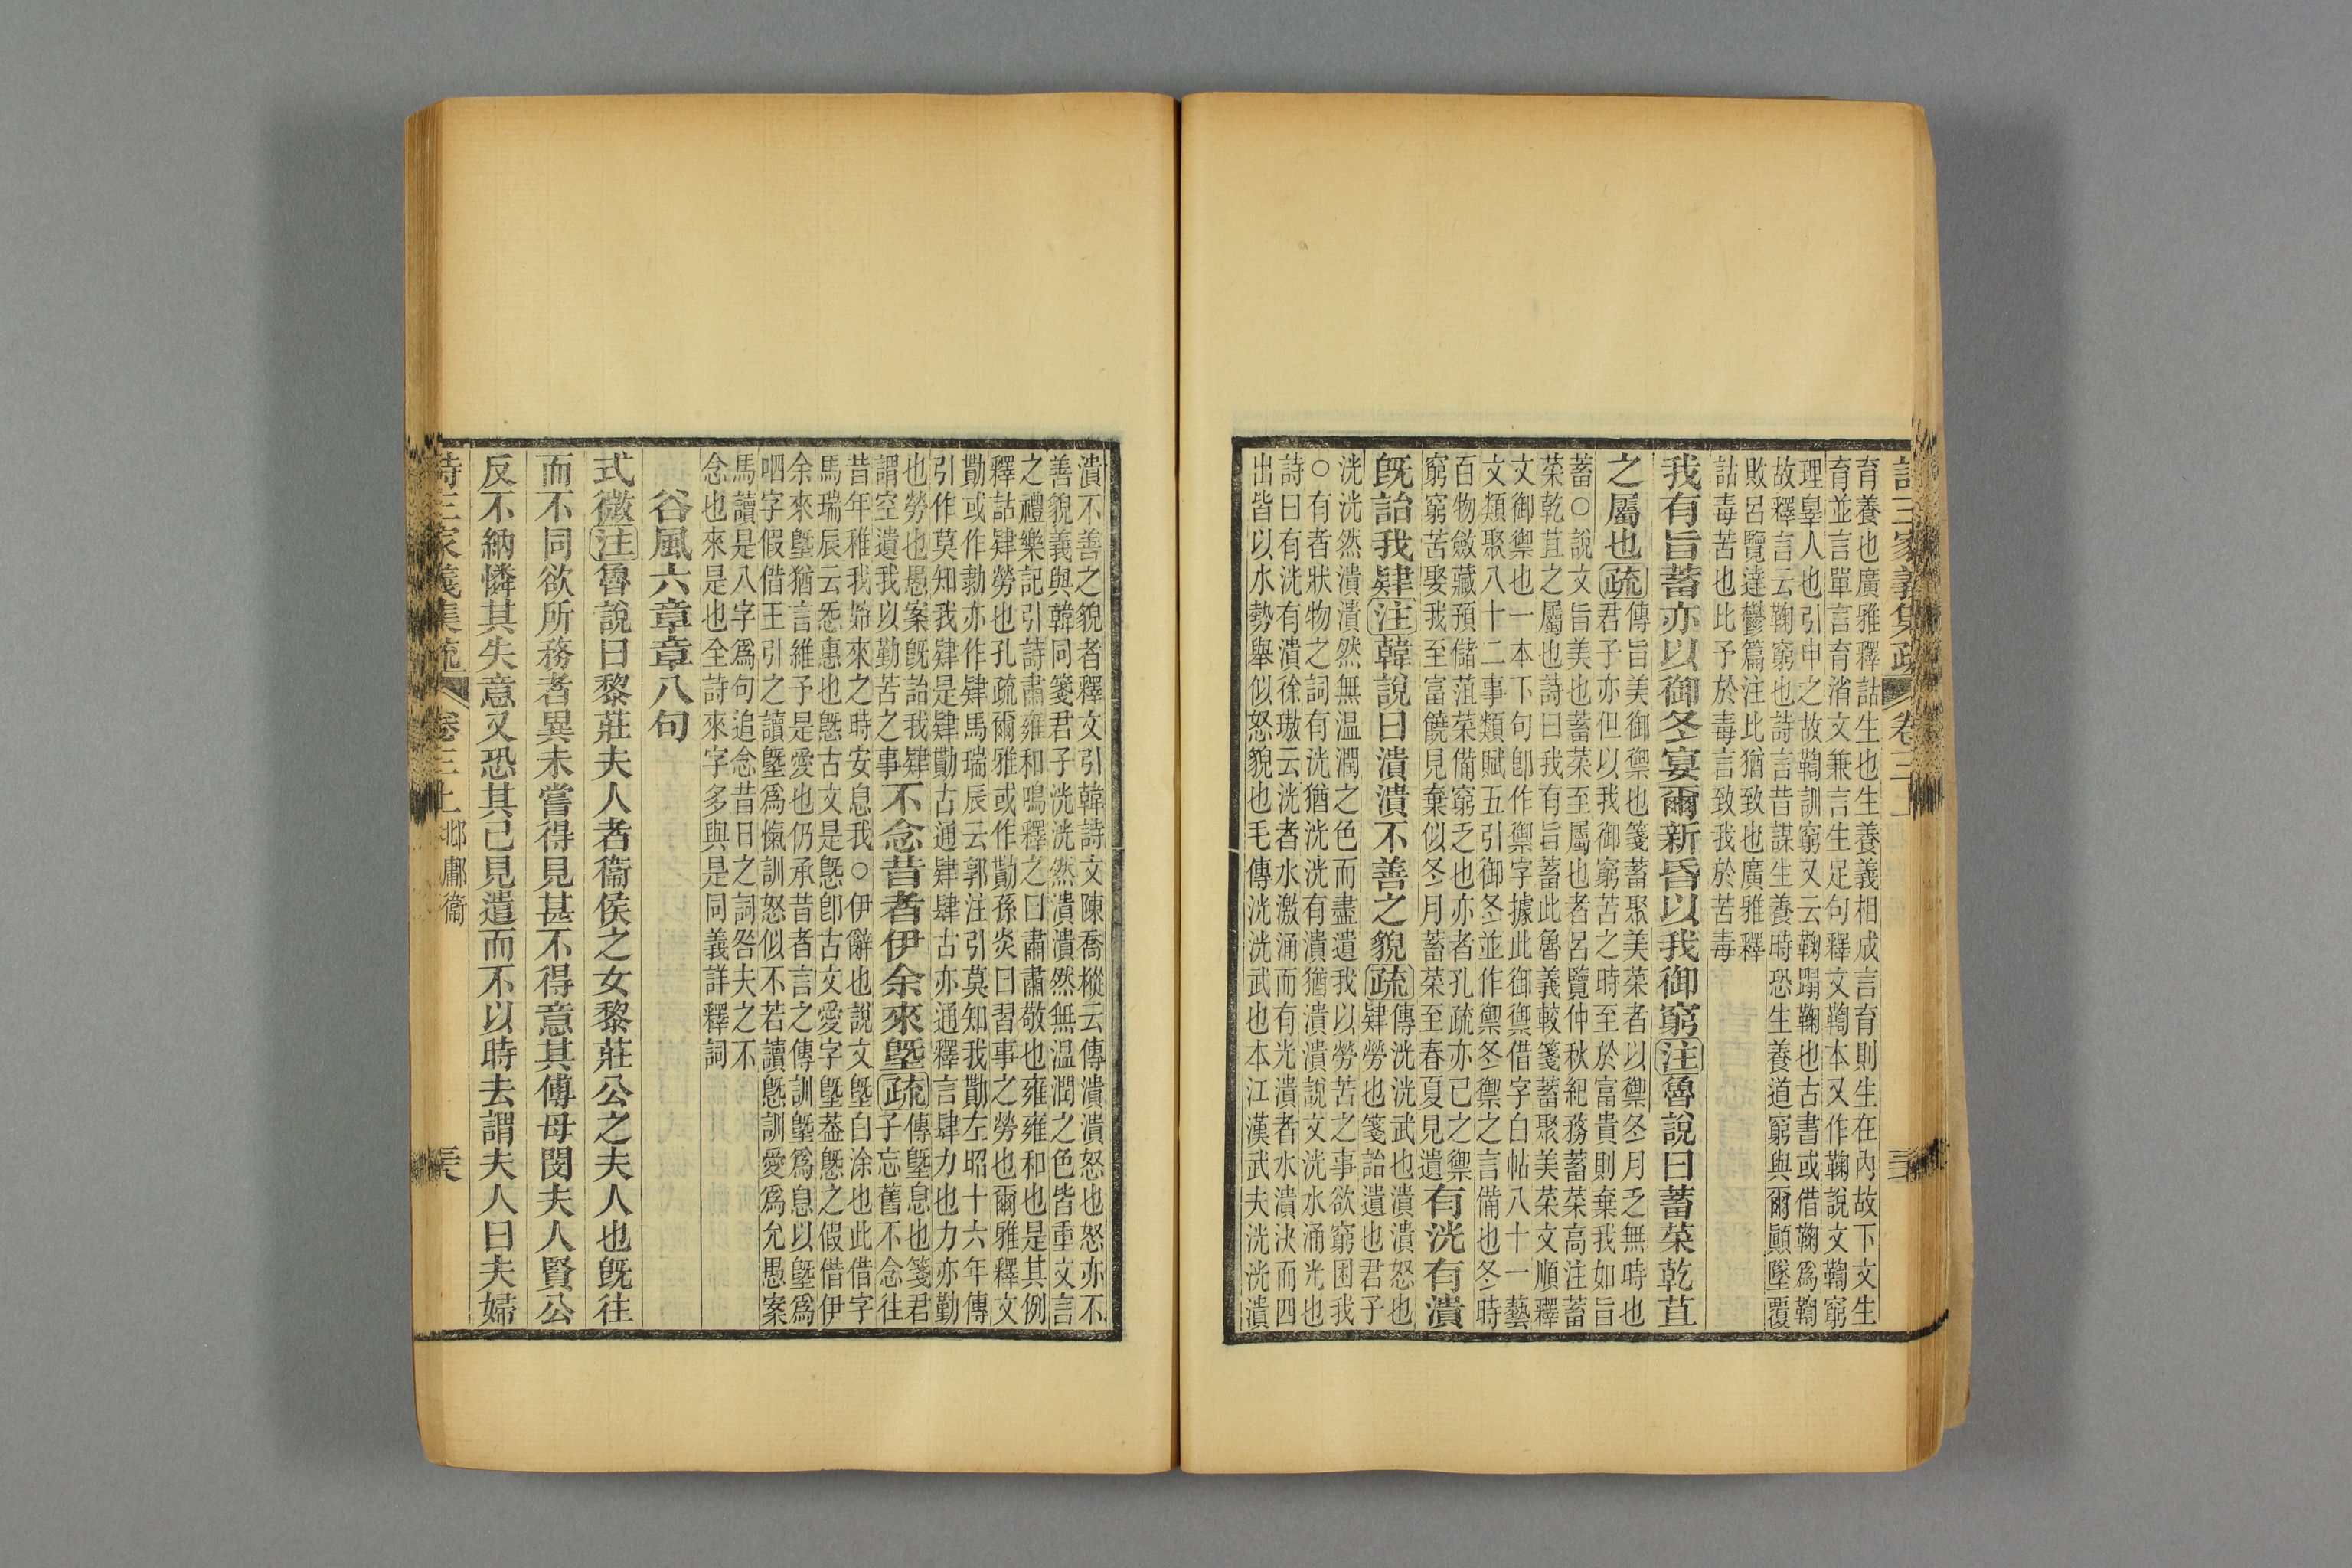 詩三家義集疏 卷三上
育養也廣雅釋詁生也生養義相成言育則生在內故下文生
育並言單言育消文兼言生足句釋文鞫本又作鞠說文鞫窮
理辠人也引申之故鞫訓窮又云鞠蹋鞠也古書或借鞠爲鞫
故釋言云鞠窮也詩言昔謀生養時恐生養道窮與爾顚墜覆
敗呂覽達鬱篇注比猶致也廣雅釋
詁毒苦也比予於毒言致我於苦毒
我有旨蓄亦以御冬宴爾新昏以我御窮注魯說曰蓄菜乾苴
之屬也疏
傳旨美御禦也箋蓄聚美菜者以禦冬月乏無時也
君子亦但以我御窮苦之時至於富貴則棄我如旨
蓄○說文旨美也蓄菜至屬也者呂覽仲秋紀務蓄菜高注蓄
菜乾苴之屬也詩曰我有旨蓄此魯義較箋蓄聚美菜文順釋
文御禦也一本下句卽作禦字據此御禦借字白帖八十一藝
文類聚八十二事類賦五引御冬並作禦冬禦之言備也冬時
百物斂藏預儲菹菜備窮乏也亦者孔疏亦已之禦
窮窮苦娶我至富饒見棄似冬月蓄菜至春夏見遺
有洸有潰
旣詒我肄注韓說曰潰潰不善之貌疏
傳洸洸武也潰潰怒也
肄勞也箋詒遺也君子
洸洸然潰潰然無温潤之色而盡遺我以勞苦之事欲窮困我
○有者狀物之詞有洸猶洸洸有潰猶潰潰說文洸水涌光也
詩曰有洸有潰徐璈云洸者水激涌而有光潰者水潰決而四
出皆以水勢舉似怒貌也毛傳洸洸武也本江漢武夫洸洸潰
潰不善之貌者釋文引韓詩文陳喬樅云傳潰潰怒也怒亦不
善貌義與韓同箋君子洸洸然潰潰然無温潤之色皆重文言
之禮樂記引詩肅雍和鳴釋之曰肅肅敬也雍雍和也是其例
釋詁肄勞也孔疏爾雅或作勩孫炎曰習事之勞也爾雅釋文
勩或作勚亦作肄馬瑞辰云郭注引莫知我勩左昭十六年傳
引作莫知我肄是肄勩古通肄肆古亦通釋言肆力也力亦勤
也勞也愚案旣詒我肄
謂空遺我以勤苦之事
不念昔者伊余來塈疏
傳塈息也箋君
子忘舊不念往
昔年稚我始來之時安息我○伊辭也說文塈白涂也此借字
馬瑞辰云㤅惠也旣古文是㤅卽古文愛字塈蓋㤅之假借伊
余來塈猶言維予是愛也仍承昔者言之傳訓塈爲息以塈爲
呬字假借王引之讀塈爲愾訓怒似不若讀㤅訓愛爲允愚案
馬讀是八字爲句追念昔日之詞咎夫之不
念也來是也全詩來字多與是同義詳釋詞
谷風六章章八句
式微注魯說曰黎莊夫人者衞侯之女黎莊公之夫人也旣往
而不同欲所務者異未嘗得見甚不得意其傅母閔夫人賢公
反不納憐其失意又恐其已見遣而不以時去謂夫人曰夫婦
詩三家義集疏 卷三上 邶鄘衞